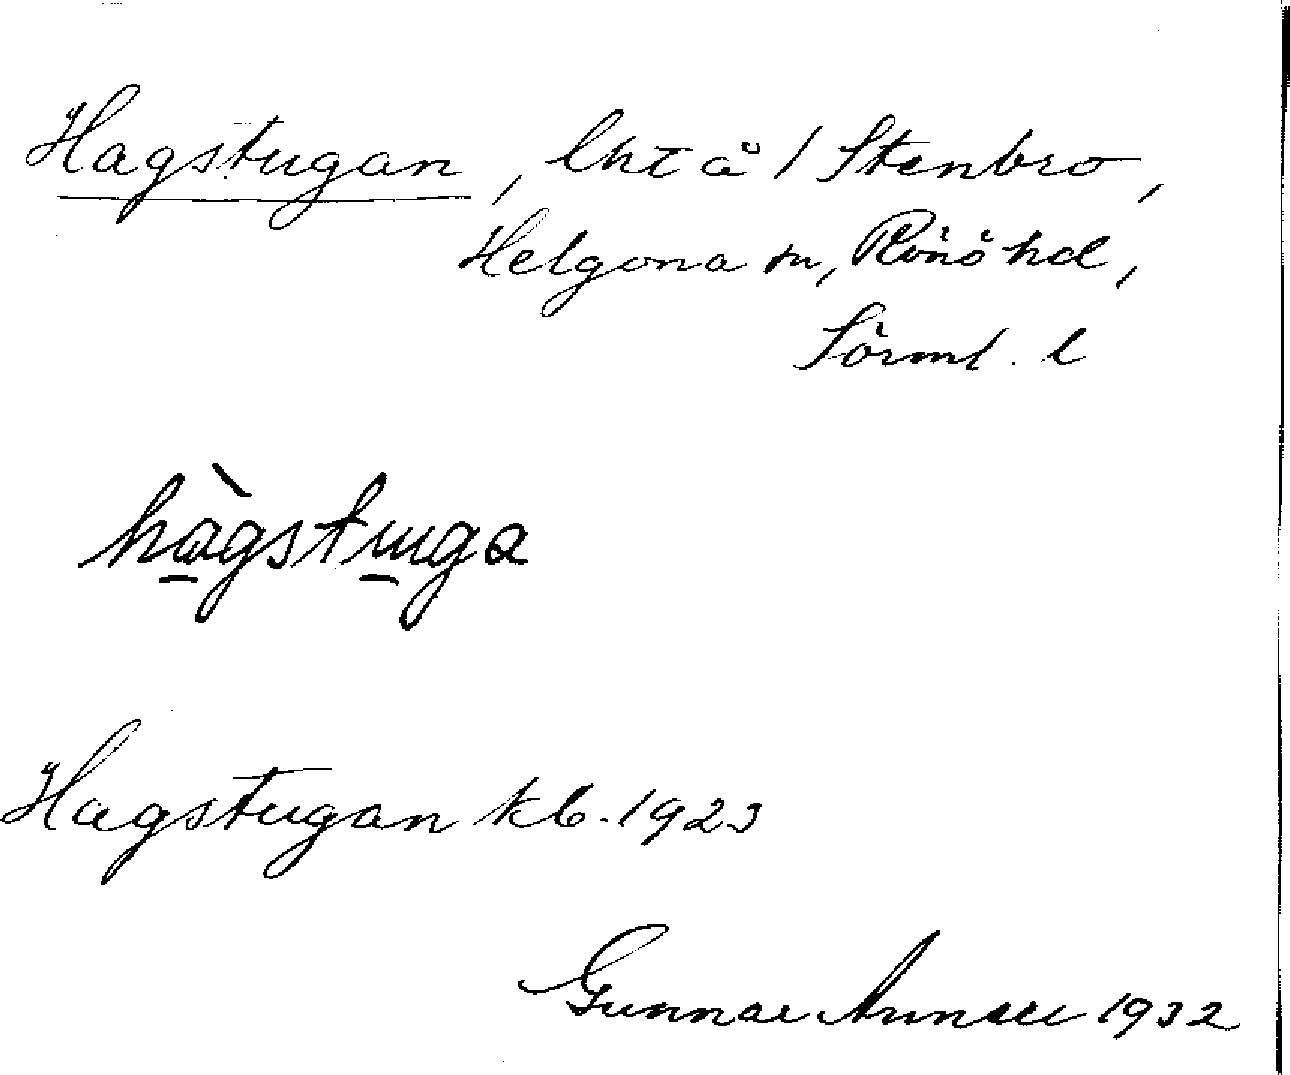 Hagstugan, lht å 1 Stenbro,
Helgona sn, Rönö hd,
Sörml. l
hàgstuga
Hagstugan kb. 1923
Gunnar 1932